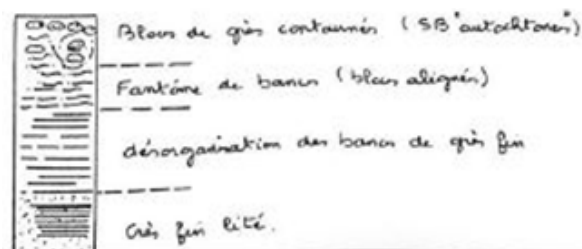 Blocs de grès contournés (SB "autochtones")
Fantôme de bancs (blocs alignés)
désorganisation des bancs de grès fin
Grès fin lité.